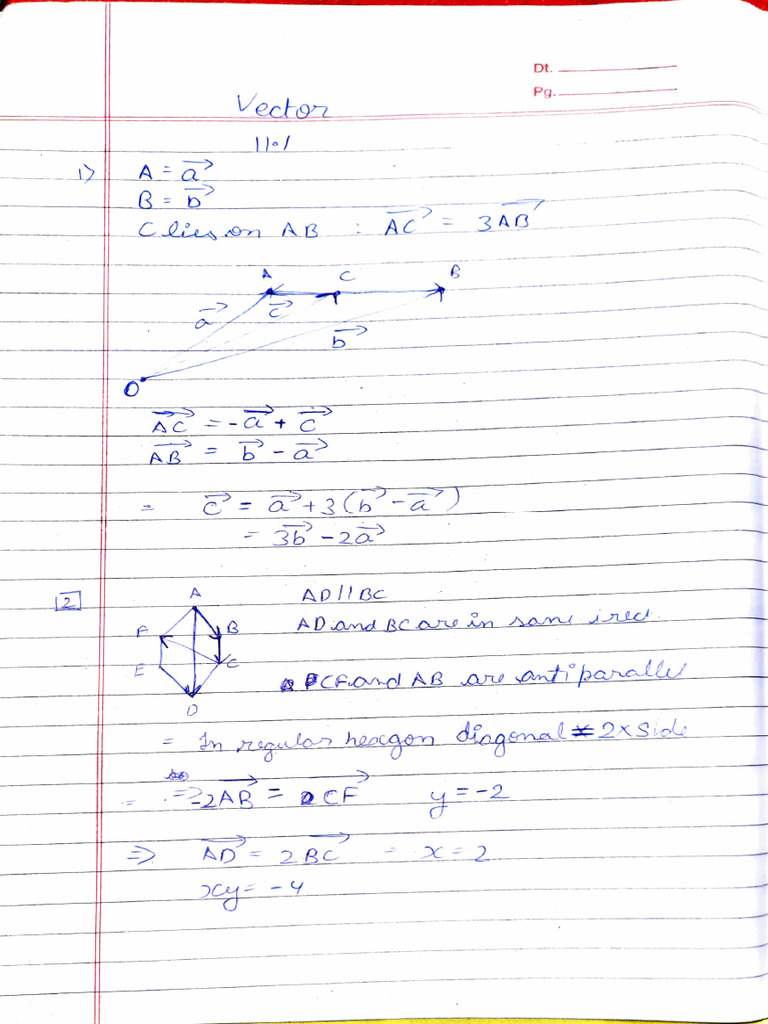 Dt.
Pg.
Vector
11.1
1) A = a⃗
B = b⃗
C lies on AB : AC⃗ = 3AB⃗
A C B
a⃗ c⃗
b⃗
O
AC⃗ = -a⃗ + c⃗
AB⃗ = b⃗ - a⃗
= c⃗ = a⃗ + 3(b⃗ - a⃗)
= 3b⃗ - 2a⃗
2 A AD//BC
F B AD and BC are in same irec
E C CF and AB are antiparalle
D
= In regular hexgon diagonal = 2 x Side
=> -2AB⃗ = CF⃗ y = -2
=> AD⃗ = 2BC⃗ = x = 2
xy = -4